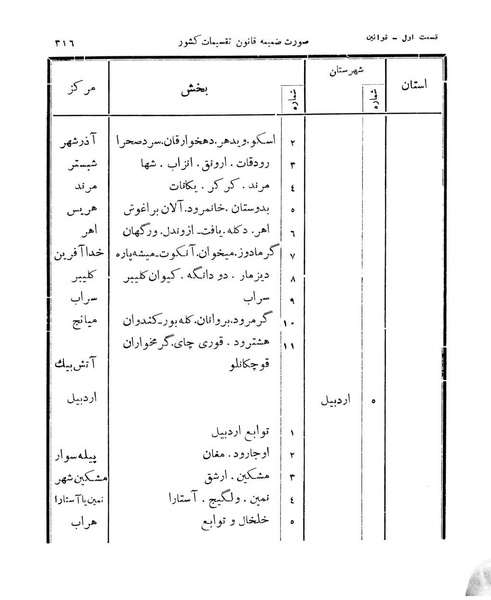 قسمت اول - قوانین
صورت ضمیمه قانون تقسیمات کشور
۳۱۶
استان شهرستان شماره بخش شماره مرکز
۲ اسکو . ویدهر . دهخوارقان . سردصحرا آذرشهر
۳ رودقات . ارونق . انزاب . شها شبستر
٤ مرند . کرکر . یکانات مرند
۵ بدوستان . خانمرود . آلان براغوش هریس
۶ اهر . دکله . یافت . ازوندل . ورگهان اهر
۷ گرمادوز . میخوان . آنکوت . میشه پاره خداآفرین
۸ دیزمار . دودانگه . کیوان کلیبر کلیبر
۹ سراب سراب
۱۰ گرمرود . بروانان . کله بوز . کندوان میانج
۱۱ هشترود . قوری چای . گرمخواران
قوچکانلو آتش بیك
۵ اردبیل اردبیل
۱ توابع اردبیل
۲ اوجارود . مغان پیله سوار
۳ مشکین . ارشق مشکین شهر
٤ نمین . ولگیج . آستارا نمین یا آستارا
۵ خلخال و توابع هراب